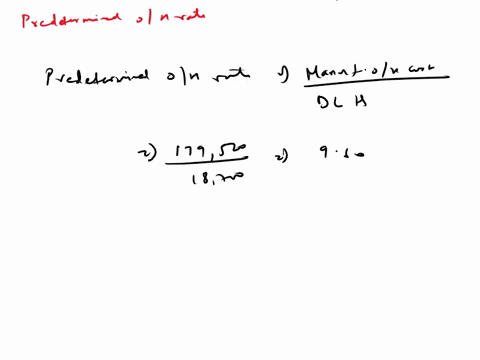 Predetermind o/h rate
Predetermind o/h rate => Manuf. o/h cost
DLH
=> 179,520 => 9.60
18,700